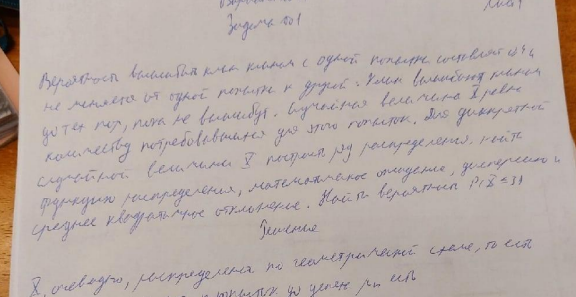 Задача №1
Вероятность вышибить клин клином с одной попытки составляет 0,4 и
не меняется от одной попытки к другой. Клин вышибают клином
до тех пор, пока не вышибут. Случайная величина X равна
количеству потребовавшихся для этого попыток. Для дискретной
случайной величины X построить ряд распределения, найти
функцию распределения, математическое ожидание, дисперсию и
среднее квадратичное отклонение. Найти вероятность P(X≤3)
Решение
X, очевидно, распределена по геометрической схеме, то есть
попыток до